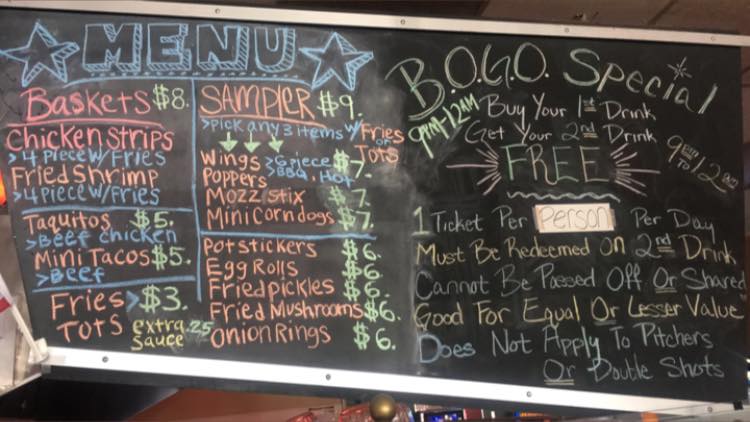 MENU
Baskets $8.
Chicken Strips
>4 Piece w/ Fries
Fried Shrimp
>4 Piece w/ Fries
Taquitos $5.
>Beef chicken
Mini Tacos $5.
>Beef
Fries > $3.
Tots
extra .25
sauce
SAMPLER $9.
>Pick any 3 items w/ Fries
or
Tots
Wings >6 piece $7.
Poppers >BBQ, Hot
Mozz Stix $7.
Mini Corndogs $7.
Potstickers $6.
Egg Rolls $6.
Fried pickles $6.
Fried Mushrooms $6.
Onion Rings $6.
B.O.G.O. Special
9PM-12AM
Buy Your 1st Drink
Get Your 2nd Drink
FREE
9 to 12
1 Ticket Per Person Per Day
Must Be Redeemed On 2nd Drink
Cannot Be Passed Off Or Shared
Good For Equal Or Lesser Value
Does Not Apply To Pitchers
Or Double Shots